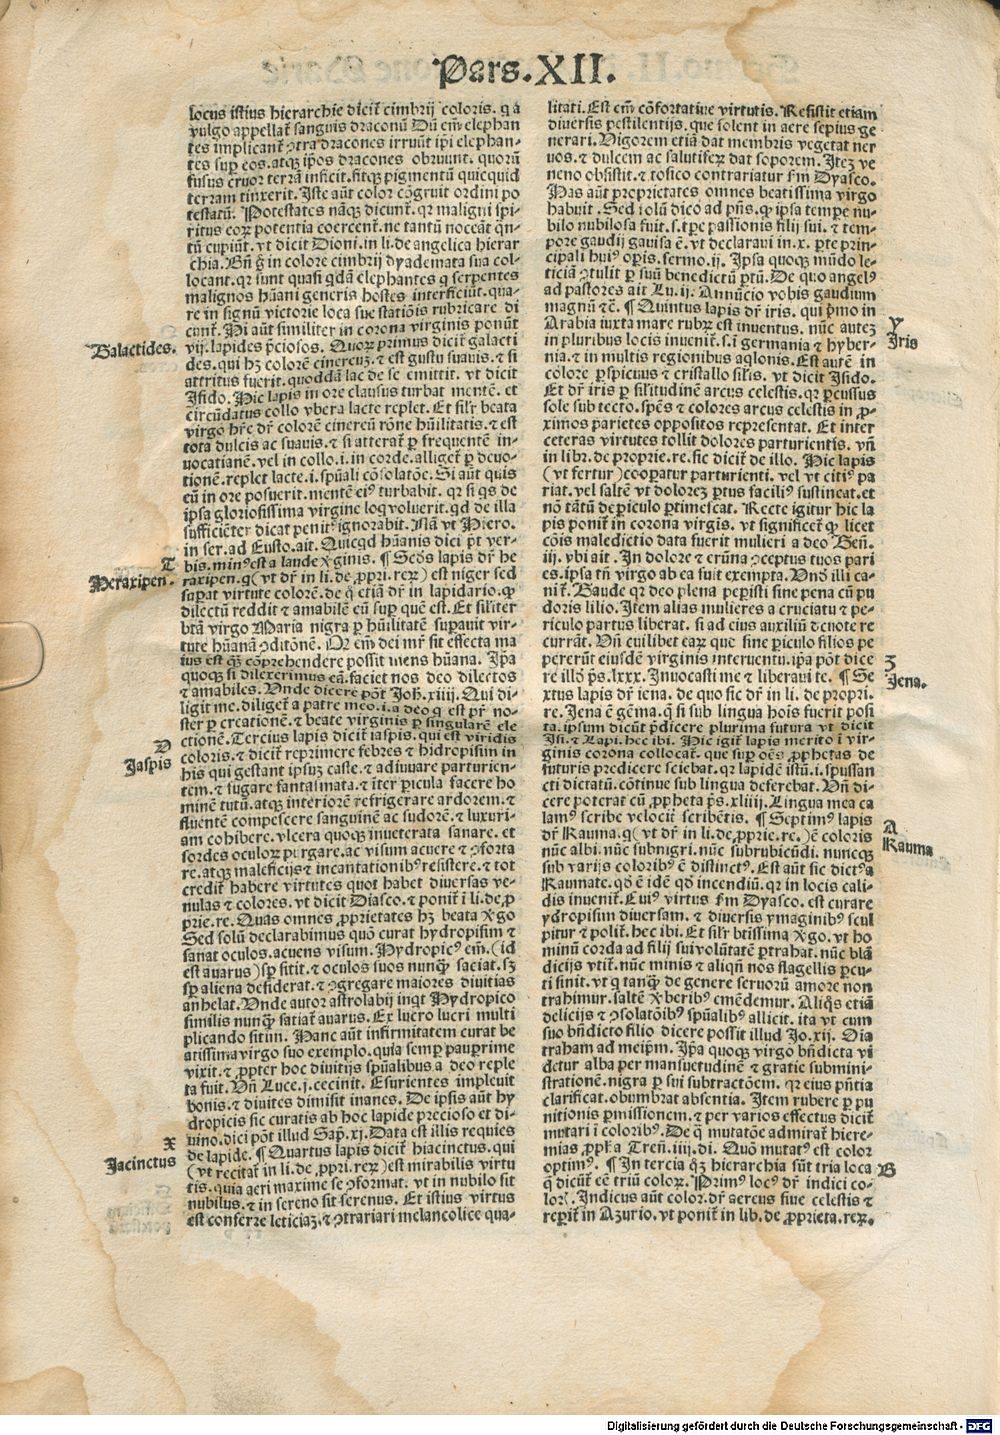 Pars.XII.
locus istius hierarchie dicit̃ cimbrij coloris. q a
vulgo appellat̃ sanguis draconũ Dũ em̃ elephan
tes implicant̃ ꝯtra dracones irruũt ip̃i elephan-
tes sup̃ eos. atqꝫ ip̃os dracones obruunt. quorũ
fusus cruor terrã inficit. fitqꝫ pigmentũ quicquid
terram tinxerit. Iste aũt color cõgruit ordini po
testatũ. Potestates nãqꝫ dicunt̃. qꝛ maligni spi-
ritus eoꝝ potentia coercent̃. ne tantũ noceãt qñ-
tũ cupiũt. vt dicit Dioni. in li. de angelica hierar
chia. Bñ g̃ in colore cimbrij dyademata sua col-
locant. qꝛ sunt quasi q̃dã elephantes q serpentes
malignos hũani generis hostes interficiũt. qua-
re in signũ victorie loca sue statiõis rubricare di
cunt̃. Hi aũt similiter in corona virginis ponũt
vij. lapides p̃ciosos. Quoꝝ primus dicit̃ galacti
des. qui hꝫ colorẽ cinereuꝫ. ⁊ est gustu suauis. ⁊ si
attritus fuerit. quoddã lac de se emittit. vt dicit
Isido. Hic lapis in ore clausus turbat mentẽ. et
circũdatus collo vbera lacte replet. Et sil'r beata
virgo hr̃e dr̃ colorẽ cinereũ rõne hũilitatis. ⁊ est
tota dulcis ac suauis. ⁊ si atterat̃ ꝑ frequentẽ in-
uocationẽ. vel in collo .i. in corde. alliget̃ ꝑ deuo-
tionẽ. replet lacte .i. spũali cõsolatõe. Si aũt quis
eũ in ore posuerit. mentẽ eiꝰ turbabit. qꝛ si qs de
ip̃sa gloriosissima virgine loq voluerit. qd de illa
sufficiẽter dicat penitꝰ ignorabit. Nã vt Hiero.
in ser. ad Eusto. ait. Quicqd hũanis dici p̃t ver-
bis. minꝰ est a laude v̾ginis. ¶ Scd̃s lapis dr̃ he
raxipen. q (vt dr̃ in li. de ꝓpri. reꝝ) est niger sed
suꝑat virtute colorẽ. de q̃ etiã dr̃ in lapidario. ꝙ
dilectũ reddit ⁊ amabilẽ eũ suꝑ quẽ est. Et sil'iter
btã virgo Maria nigra ꝑ hũilitatẽ suꝑauit vir-
tute hũanã ꝯditonẽ. Qꝛ em̃ dei mr̃ sit effecta ma
ius est q̃ꝫ cõprehendere possit mens hũana. Ip̃a
quoqꝫ si dilexerimus eã. faciet nos deo dilectos
⁊ amabiles. Vnde dicere põt Joh̃. xiiij. Qui di-
ligit me. diliget̃ a patre meo .i. a deo q est pr̃ no-
ster ꝑ creationẽ. ⁊ beate virginis ꝑ singularẽ ele
ctionẽ. Tercius lapis dicit̃ iaspis. qui est viridis
coloris. ⁊ dicit̃ reprimere febres ⁊ hidropisim in
his qui gestant ipsuꝫ caste. ⁊ adiuuare parturien-
tem. ⁊ fugare fantasmata. ⁊ ĩter ꝑicula facere ho
minẽ tutũ. atqꝫ interiorẽ refrigerare ardorem. ⁊
fluentẽ compescere sanguinẽ ac sudorẽ. ⁊ luxuri-
am cohibere. vlcera quoqꝫ inueterata sanare. et
sordes oculoꝝ purgare. ac visum acuere ⁊ ꝯforta
re. atqꝫ maleficijs ⁊ incantationibꝰ resistere. ⁊ tot
credit̃ habere virtutes quot habet diuersas ve-
nulas ⁊ colores. vt dicit Diasco. ⁊ ponit̃ ĩ li. de ꝓ
prie. re. Quas omnes ꝓprietates hꝫ beata v̾go
Sed solũ declarabimus quõ curat hydropisim ⁊
sanat oculos. acuens visum. Hydropicꝰ em̃. (id
est auarus) sꝑ sitit. ⁊ oculos suos nunq̃ꝫ saciat. sꝫ
sꝑ aliena desiderat. ⁊ ꝯgregare maiores diuitias
anhelat. Vnde autor astrolabij inq̃t Hydropico
similis nunq̃ꝫ satiat̃ auarus. Ex lucro lucri multi
plicando sitim. Hanc aũt infirmitatem curat be
atissima virgo suo exemplo. quia semꝑ pauꝑrime
vixit. ⁊ ꝓpter hoc diuitijs spũalibus a deo reple
ta fuit. Vñ Luce .j. cecinit. Esurientes impleuit
bonis. ⁊ diuites dimisit inanes. De ipsis aũt hy
dropicis sic curatis ab hoc lapide precioso et di-
uino. dici põt illud Sap̃. xj. Data est illis requies
de lapide. ¶ Quartus lapis dicit̃ hiacinctus. qui
(vt recitat̃ in li. de ꝓpri. reꝝ) est mirabilis virtu
tis. quia aeri maxime se ꝯformat. vt in nubilo sit
nubilus. ⁊ in sereno sit serenus. Et istius virtus
est conferre leticiaꝫ. ⁊ ꝯtrariari melancolice qua-
Galactides.
T
Heraxipen.
V
Jaspis
X
Jacinctus
litati. Est em̃ cõfortatiue virtutis. Resistit etiam
diuersis pestilentijs. que solent in aere sepius ge
nerari. Vigorem etiã dat membris vegetat ner
uos. ⁊ dulcem ac salutiferꝫ dat soporem. Iteꝫ ve
neno obsistit. ⁊ tosico contrariatur s'm Dyasco.
Has aũt proprietates omnes beatissima virgo
habuit. Sed solũ dico ad p̃ns. ꝙ ip̃sa temꝑe nu-
bilo nubilosa fuit. s. tꝑe passionis filij sui. ⁊ tem-
pore gaudij gauisa ẽ. vt declaraui in. x. ꝑte prin-
cipali huiꝰ oꝑis. sermo. ij. Ipsa quoqꝫ mũdo le-
ticiã ꝯtulit ꝑ suũ benedictũ ꝑtũ. De quo angelꝰ
ad pastores ait Lu. ij. Annũcio vobis gaudium
magnũ ⁊c̃. ¶ Quintus lapis dr̃ iris. qui p̃mo in
Arabia iuxta mare rubꝝ est inuentus. nũc auteꝫ
in pluribus locis inuenit̃. s. ĩ germania ⁊ hyber-
nia. ⁊ in multis regionibus aq̃lonis. Est autẽ in
colore ꝑspicuus ⁊ cristallo sil'is. vt dicit Isido.
Et dr̃ iris ꝑ sil'itudinẽ arcus celestis. qꝛ ꝑcussus
sole sub tecto. spẽs ⁊ colores arcus celestis in ꝓ-
ximos parietes oppositos representat. Et inter
ceteras virtutes tollit dolores parturientis. vñ
in libr. de proprie. re. sic dicit̃ de illo. Hic lapis
(vt fertur) cooꝑatur parturienti. vel vt citiꝰ pa
riat. vel saltẽ vt doloreꝫ ꝑtus faciliꝰ sustineat. et
nõ tãtũ de ꝑiculo ꝑtimescat. Recte igitur hic la
pis ponit̃ in corona virgĩs. vt significet̃ ꝙ licet
cõis maledictio data fuerit mulieri a deo Geñ.
iij. vbi ait. In dolore ⁊ erũna ꝯceptus tuos pari
es. ip̃sa tñ virgo ab ea fuit exempta. Vnð illi ca-
nit̃. Gaude qꝛ deo plena peꝑisti sine pena cũ pu
doris lilio. Item alias mulieres a cruciatu ⁊ pe-
riculo partus liberat. si ad eius auxiliũ deuote re
currãt. Vñ cuilibet earꝫ que sine ꝑiculo filios pe
pererũt eiusdẽ virginis interuentu. ip̃a põt dice
re illð p̃s. lxxx. Inuocasti me ⁊ liberaui te. ¶ Se
xtus lapis dr̃ iena. de quo sic dr̃ in li. de propri.
re. Jena ẽ gẽma. q̃ si sub lingua hoĩs fuerit posi
ta. ipsum dicũt p̃dicere plurima futura vt dicit
Isi. ⁊ Lapi. hec ibi. Hic igit̃ lapis merito ĩ vir-
ginis corona collocat̃. que suꝑ oẽs ꝓphetas de
futuris predicere sciebat. qꝛ lapidẽ istũ .i. spũssan
cti dictatũ. cõtinue sub lingua deferebat. Vñ di-
cere poterat cũ ꝓpheta p̃s. xliiij. Lingua mea ca
lamꝰ scribe velocit̃ scribẽtis. ¶ Septimꝰ lapis
dr̃ Kauma. q̃ (vt dr̃ in li. de ꝓprie. re.) ẽ coloris
nũc albi. nũc subnigri. nũc subrubicũdi. nuncqꝫ
sub varijs coloribꝰ ẽ distinctꝰ. Est aũt sic dictꝰ a
Kaumate. qð ẽ idẽ qð incendiũ. qꝛ in locis cali-
dis inuenit̃. Cuiꝰ virtus s'm Dyasco. est curare
ydropisim diuersam. ⁊ diuersis ymaginibꝰ scul
pitur ⁊ polit̃. hec ibi. Et sil'r bt̃issima v̾go. vt ho
minũ corda ad filij sui volũtatẽ ꝑtrahat. nũc blã
dicijs vtit̃. nũc minis ⁊ aliqñ nos flagellis ꝑcu-
ti sinit. vt q tanq̃ꝫ de genere seruorũ amore non
trahimur. saltẽ v̾beribꝰ emẽdemur. Aliqñs etiã
delicijs ⁊ ꝯsolatõibꝰ spũalibꝰ allicit. ita vt cum
suo bñdicto filio dicere possit illud Jo. xij. Oĩa
traham ad meip̃m. Ip̃a quoqꝫ virgo bñdicta vi
detur alba per mansuetudinẽ ⁊ gratie submini-
strationẽ. nigra ꝑ sui subtractõem. qꝛ eius pñtia
clarificat. obumbrat absentia. Item rubere ꝑ pu
nitionis ꝑmissionem. ⁊ per varios effectus dicit̃
mutari ĩ coloribꝰ. De q̃ mutatõe admirat̃ hiere-
mias ꝓph̃a Treñ. iiij. di. Quõ mutatꝰ est color
optimꝰ. ¶ In tercia q̃ꝫ hierarchia sũt tria loca
q̃ dicũt̃ eẽ triũ coloꝝ. Primꝰ locꝰ dr̃ indici co-
loris. Indicus aũt color. dr̃ aereus siue celestis ⁊
reꝑit̃ in Azurio. vt ponit̃ in lib. de ꝓprieta. reꝝ.
Y
Iris
Z
Jena.
A
Kauma
B
Digitalisierung gefördert durch die Deutsche Forschungsgemeinschaft - DFG